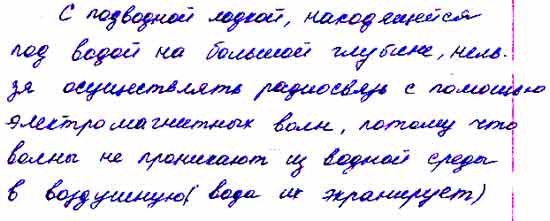 С подводной лодкой, находящейся
под водой на большой глубине, нель-
зя осуществлять радиосвязь с помощью
электромагнитных волн, потому что
волны не проникают из водной среды
в воздушную( вода их экранирует)